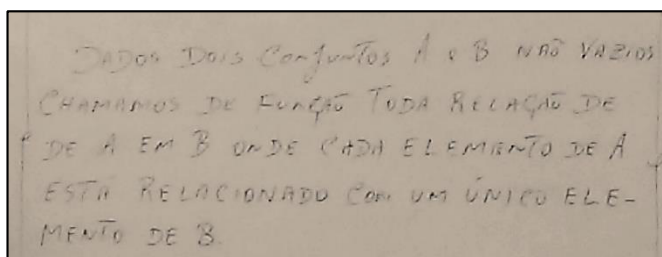 DADOS DOIS CONJUNTOS A e B NÃO VAZIOS
CHAMAMOS DE FUNÇÃO TODA RELAÇÃO DE
DE A EM B ONDE CADA ELEMENTO DE A
ESTA RELACIONADO COM UM ÚNICO ELE-
MENTO DE B.